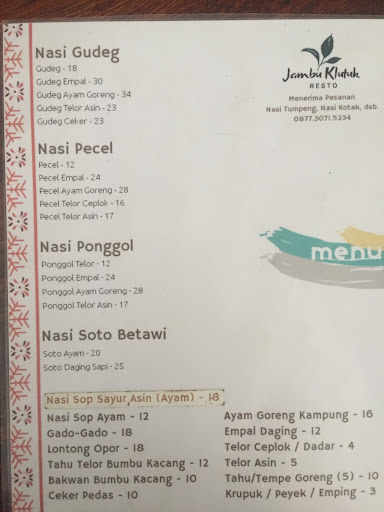 Nasi Gudeg
Gudeg - 18
Gudeg Empal - 30
Gudeg Ayam Goreng - 34
Gudeg Telor Asin - 23
Gudeg Ceker - 23
Jambu Klutuk
RESTO
Menerima Pesanan
Nasi Tumpeng, Nasi Kotak, dsb.
0877.3071.5234
Nasi Pecel
Pecel - 12
Pecel Empal - 24
Pecel Ayam Goreng - 28
Pecel Telor Ceplok - 16
Pecel Telor Asin - 17
Nasi Ponggol
Ponggol Telor - 12
Ponggol Empal - 24
Ponggol Ayam Goreng - 28
Ponggol Telor Asin - 17
menu
Nasi Soto Betawi
Soto Ayam - 20
Soto Daging Sapi - 25
Nasi Sop Sayur Asin (Ayam) - 18
Nasi Sop Ayam - 12
Gado-Gado - 18
Lontong Opor - 18
Tahu Telor Bumbu Kacang - 12
Bakwan Bumbu Kacang - 10
Ceker Pedas - 10
Ayam Goreng Kampung - 16
Empal Daging - 12
Telor Ceplok / Dadar - 4
Telor Asin - 5
Tahu/Tempe Goreng (5) - 10
Krupuk / Peyek / Emping - 3